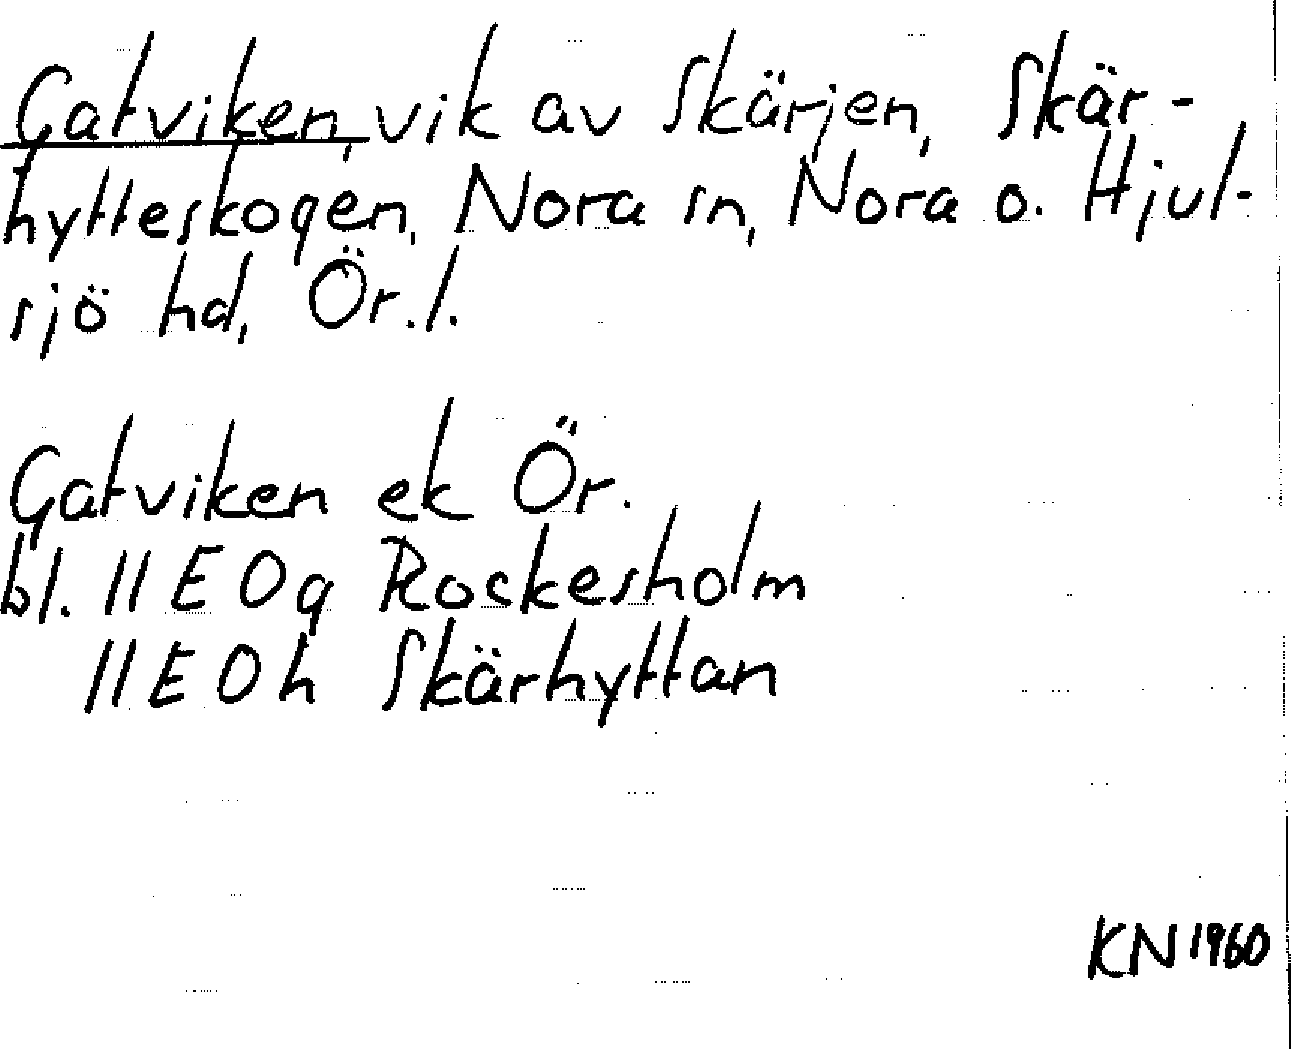 Gatviken, vik av Skärjen, Skär-
hytteskogen, Nora sn, Nora o. Hjul-
sjö hd, Ör.l.
Gatviken ek Ör.
bl. 11E0g Rockesholm
11E0h Skärhyttan
KN 1960